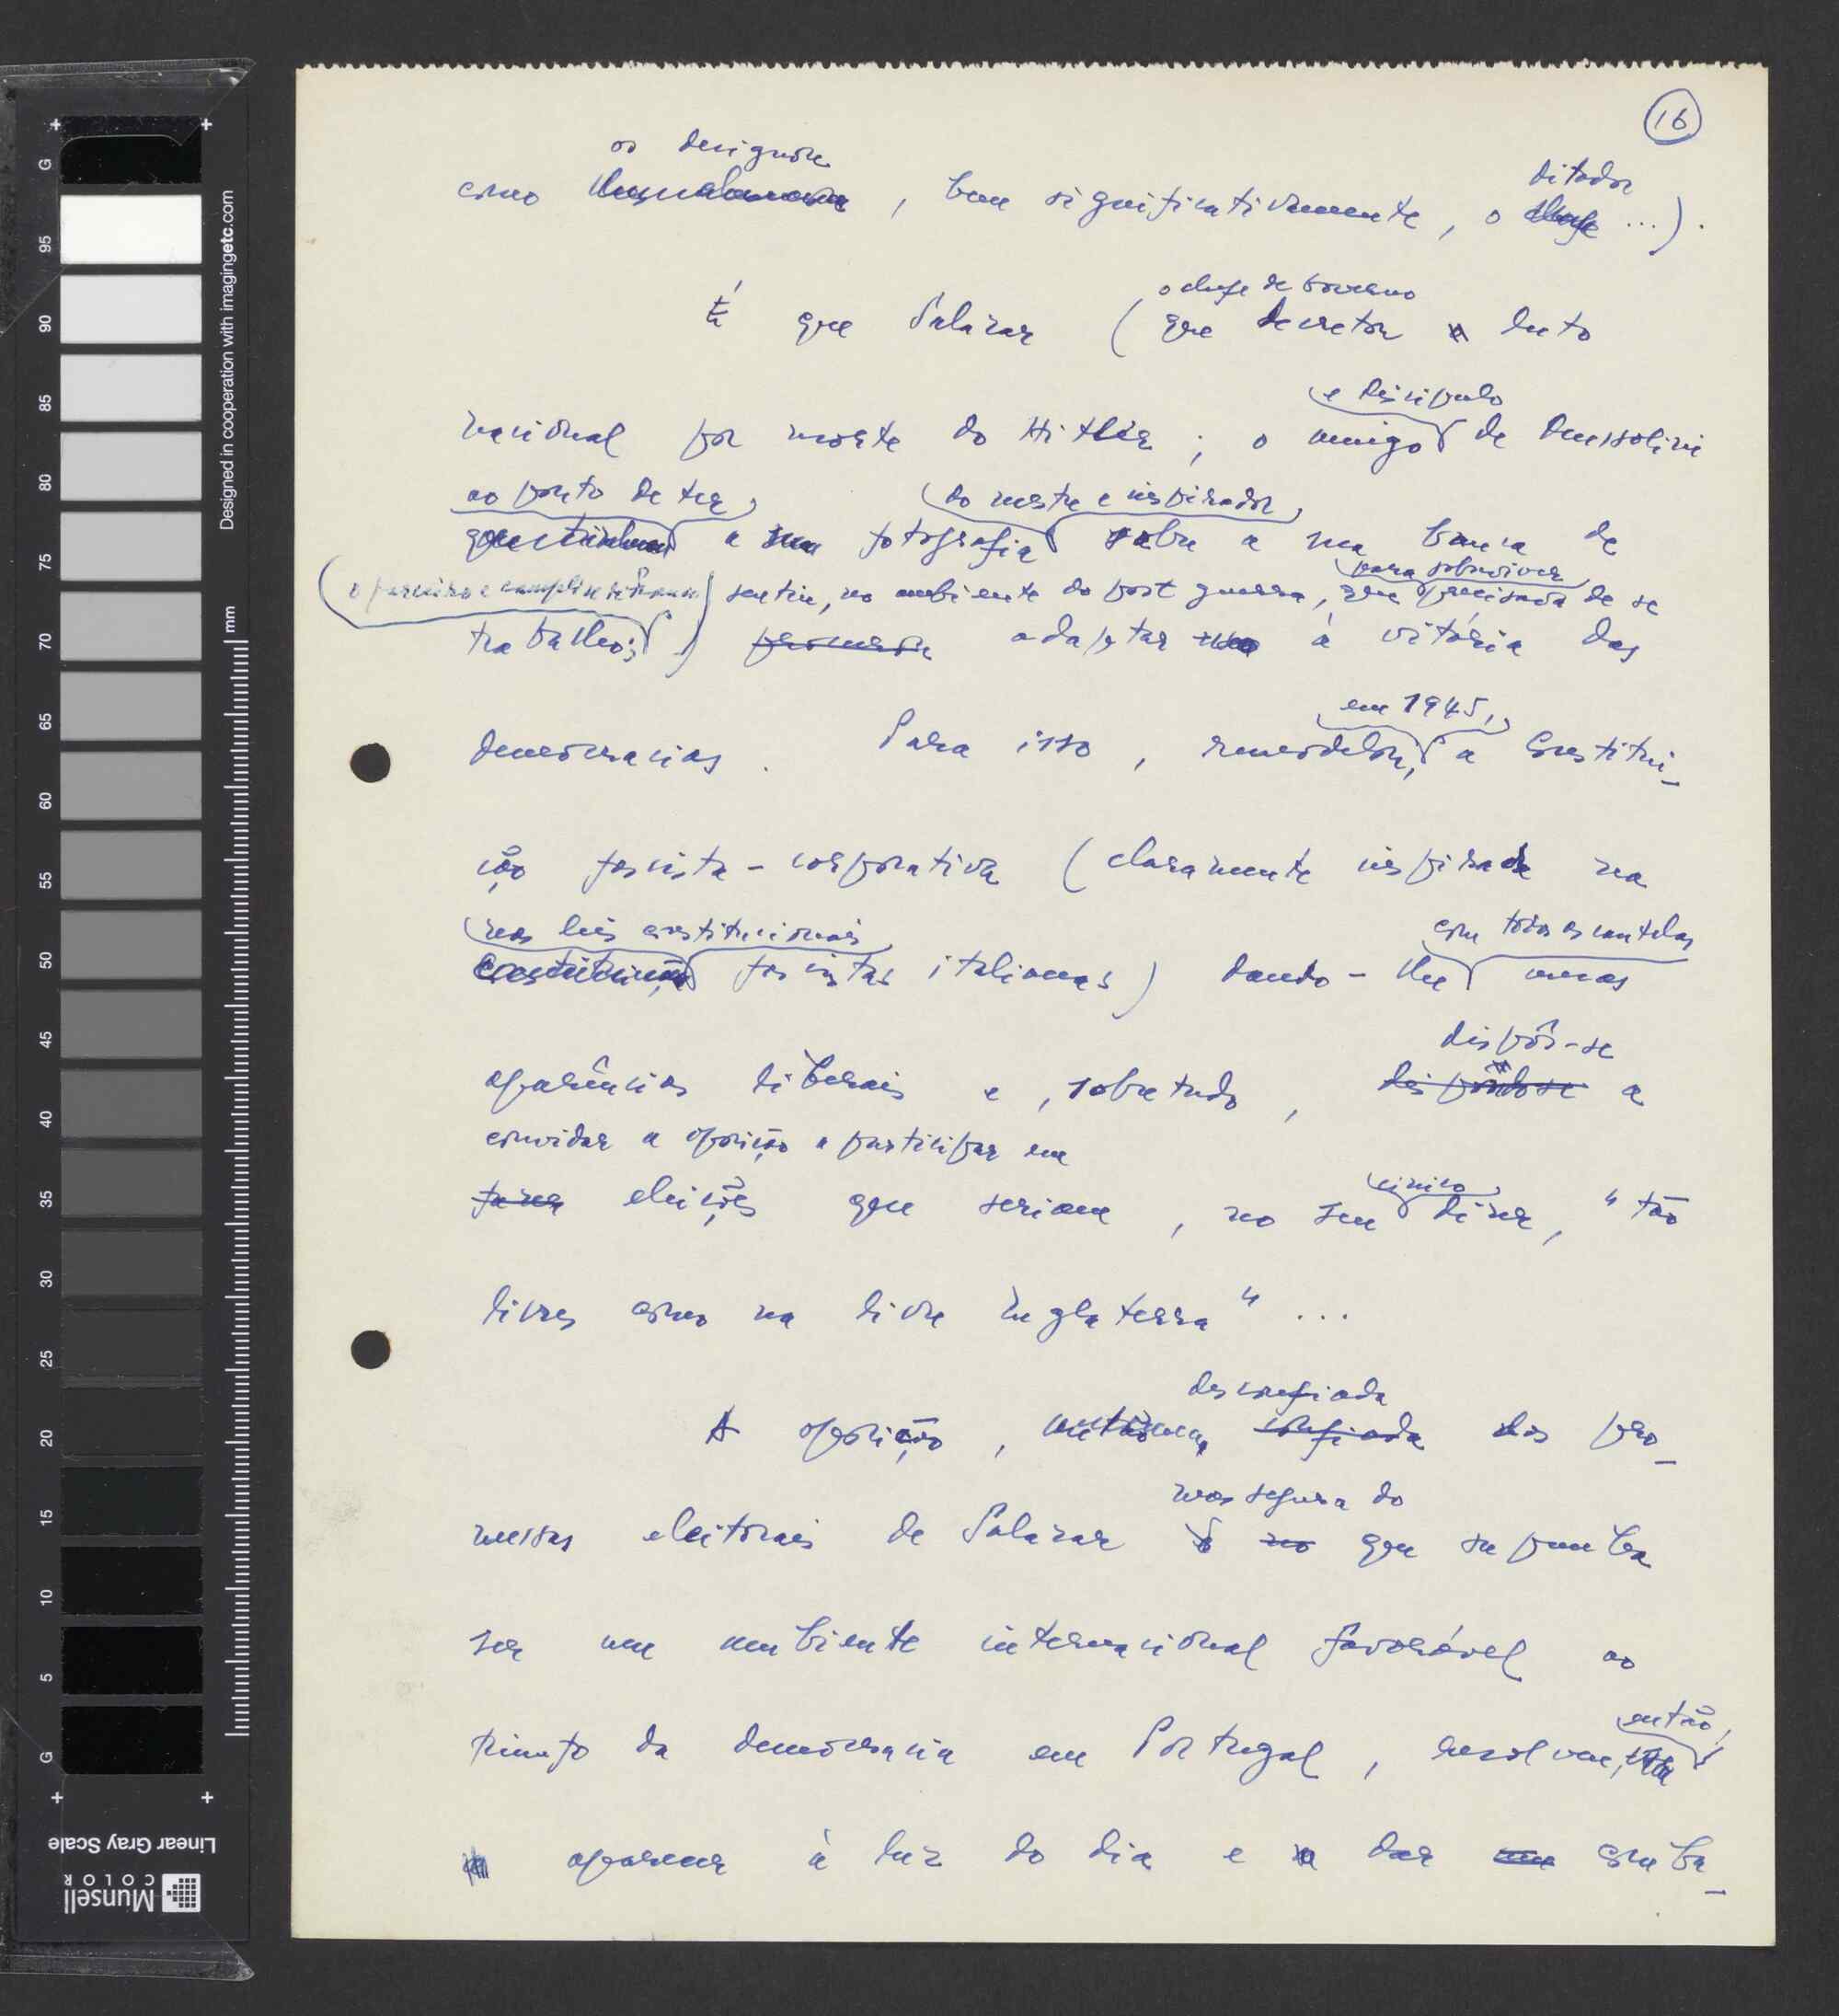 16
os designou
como , bem significativamente, o ditador ...).
o chefe de Governo
É que Salazar (que decretou luto
e discípulo
nacional por morte do Hitler; o amigo de Mussolini
ao ponto de ter, do mestre e inspirador,
a fotografia sobre a sua banca de
para sobreviver
(o parceiro e cumplice de Franco) sentiu, no ambiente do post guerra, que precisava de se
trabalho;) adaptar à vitória das
em 1945,
democracias. Para isso, remodelou, a Constitui-
ção fascista-corporativa (claramente inspirada na
nas leis constitucionais com todas as cautelas
fascistas italianas) dando-lhe umas
dispôs-se
aparências liberais e, sobretudo, a
convidar a oposição a participar em
cínico
fazer eleições que seriam, no seu dizer, "tão
livres como na livre Inglaterra" ...
desconfiada
A oposição, confiada das pro-
mas segura do
messas eleitorais de Salazar no que supunha
ser um ambiente internacional favorável ao
então,
triunfo da democracia em Portugal, resolveu,
aparecer à luz do dia e dar comba-
Designed in cooperation with imagingetc.com
mm
G
95
90
85
80
75
70
65
60
55
50
45
40
35
30
25
20
15
10
5
G
Linear Gray Scale
Munsell
COLOR